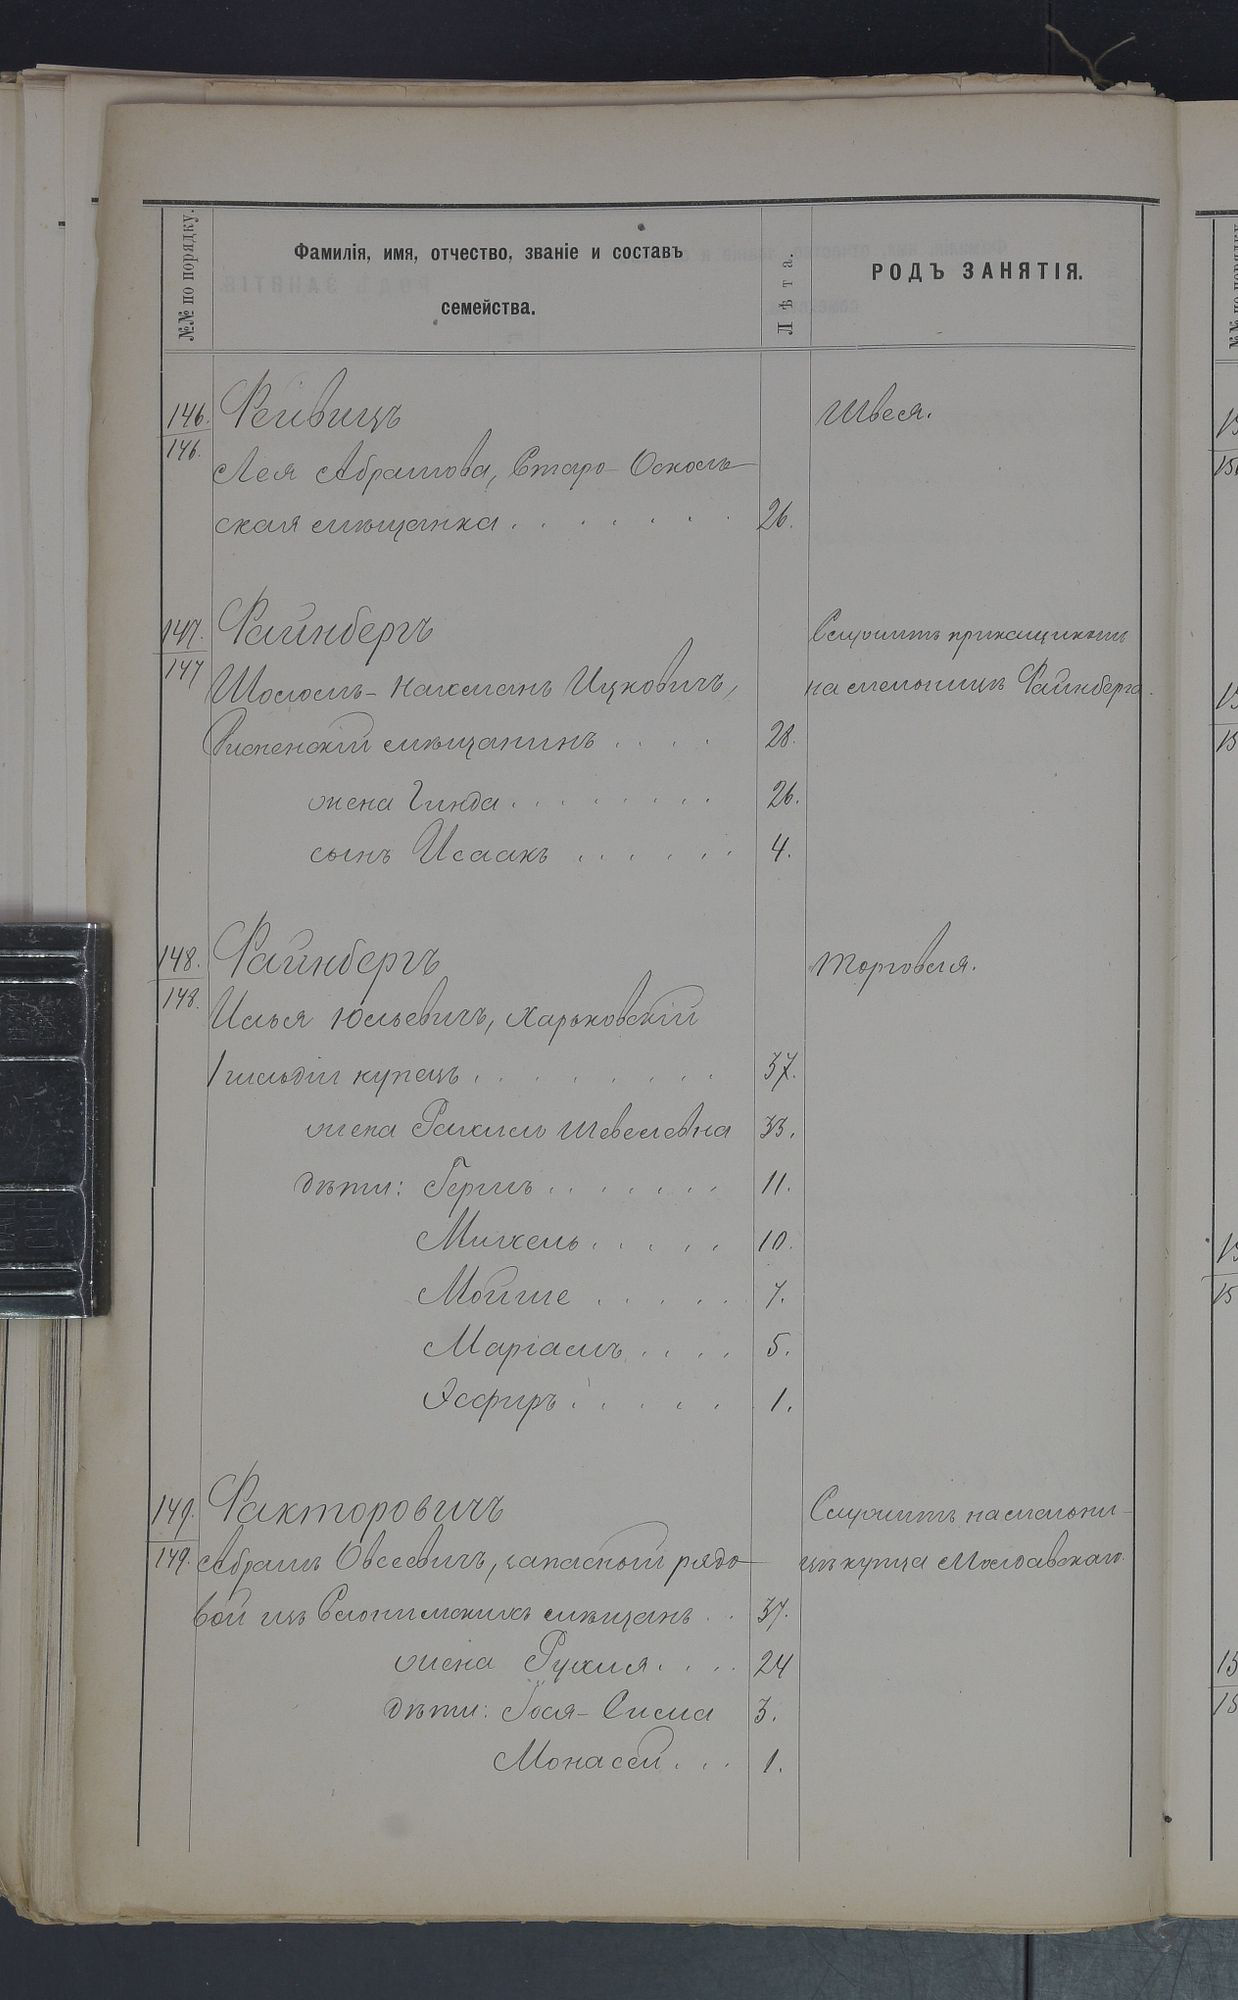 №№ по порядку.
Фамилія, имя, отчество, званіе и составъ
семейства.
Лѣта.
РОДЪ ЗАНЯТІЯ.
146. Фейвицъ Швея.
146. Лея Абрамова, Старо-Осколь-
ская мѣщанка . . . . . . . 26.
147. Файнбергъ Служитъ прикащикомъ
147 Шоломъ-Нахманъ Ицковичъ, на мельницѣ Файнберга.
мѣщанинъ . . . . 28.
жена Гинда . . . . . . . . 26.
сынъ Исаакъ . . . . . . 4.
148. Файнбергъ Торговля.
148. Илья Юльевичъ, Харьковскій
1 гильдіи купецъ . . . . . . . . . 37.
жена Рахиль Шевелевна 33.
дѣти: Герцъ . . . . . . . 11.
Михель . . . . . 10.
Мойше . . . . . . 7.
Маріамъ . . . . 5.
Эсфирь . . . . . . 1.
149. Факторовичъ Служитъ на мельни-
149. Абрамъ Овсеевичъ, запасный рядо- цѣ купца Молдавскаго.
вой изъ Слонимскихъ мѣщанъ . . 37.
жена Рухля . . . . 24
дѣти: Гося-Сима 3.
Монасей . . . 1.